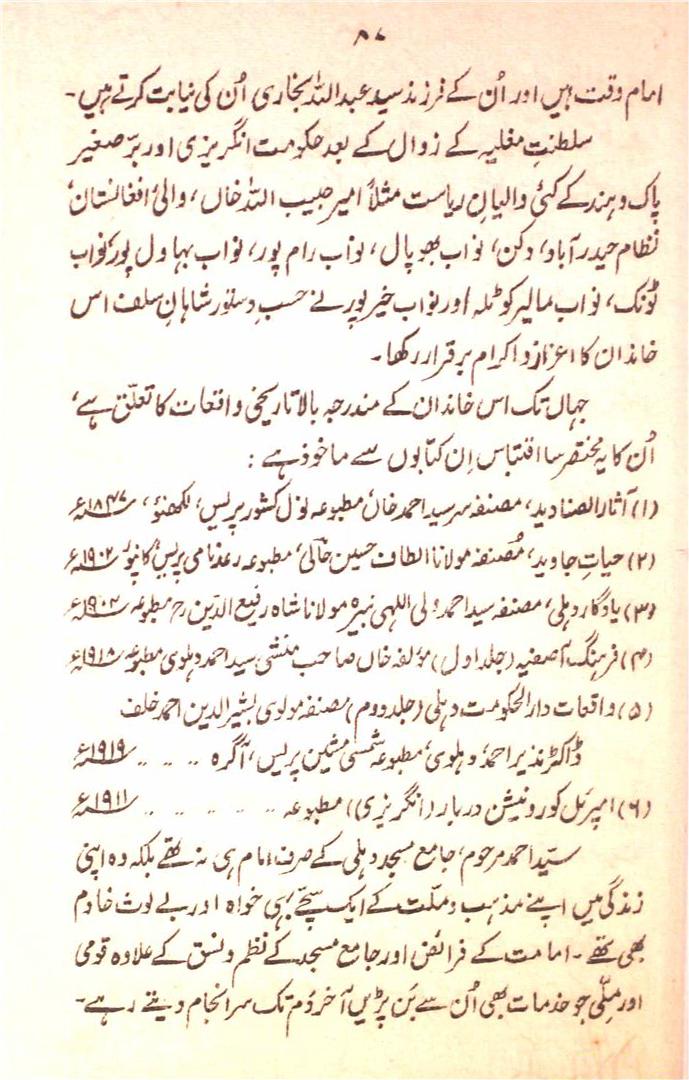 ۸۷
امام وقت ہیں اور اُن کے فرزند سید عبد اللہ بخاری اُن کی نیابت کرتے ہیں۔
سلطنتِ مغلیہ کے زوال کے بعد حکومت انگریزی اور برّ صغیر
پاک و ہند کے کئی والیانِ ریاست مثلاً امیر حبیب اللہ خاں، والیٔ افغانستان،
نظام حیدر آباد، دکن، نواب بھوپال، نواب رام پور، نواب بہاول پور، نواب
ٹونک، نواب مالیر کوٹلہ اور نواب خیرپور نے حسبِ دستور شاہانِ سلف اس
خاندان کا اعزاز و اکرام برقرار رکھا۔
جہاں تک اس خاندان کے مندرجہ بالا تاریخی واقعات کا تعلّق ہے،
اُن کا یہ مختصر سا اقتباس اِن کتابوں سے ماخوذ ہے :
(۱) آثار الصنادید، مصنفہ سر سید احمد خاں مطبوعہ نول کشور پریس، لکھنؤ، ۱۸۴۷ء
(۲) حیاتِ جاوید، مُصنفہ مولانا الطاف حسین حالی، مطبوعہ نامی پریس کانپور ۱۹۰۲ء
(۳) یادگار دہلی، مصنفہ سید احمد ولی اللہی نبیرہ مولانا شاہ رفیع الدّین رح مطبوعہ ۱۹۰۴ء
(۴) فرہنگ آصفیہ (جلد اول) مؤلفہ خاں صاحب منشی سید احمد دہلوی مطبوعہ ۱۹۱۸ء
(۵) واقعات دار الحکومت دہلی (جلد دوم) مصنفہ مولوی بشیر الدین احمد خلف
ڈاکٹر نذیر احمد، دہلوی، مطبوعہ شمسی مشین پریس، آگرہ ۔۔ ۔۔ ۔۔ ۱۹۱۹ء
(۶) امپریَل کورونیشن دربار (انگریزی) مطبوعہ ۔۔ ۔۔ ۔۔ ۔۔ ۔۔ ۱۹۱۱ء
سیّد احمد مرحوم، جامع مسجد دہلی کے صرف امام ہی نہ تھے بلکہ وہ اپنی
زندگی میں اپنے مذہب و ملّت کے ایک سچّے بہی خواہ اور بے لوث خادم
بھی تھے۔ امامت کے فرائض اور جامع مسجد کے نظم و نسق کے علاوہ قومی
اور ملّی جو خدمات بھی اُن سے بَن پڑیں آخر دَم تک سرانجام دیتے رہے۔